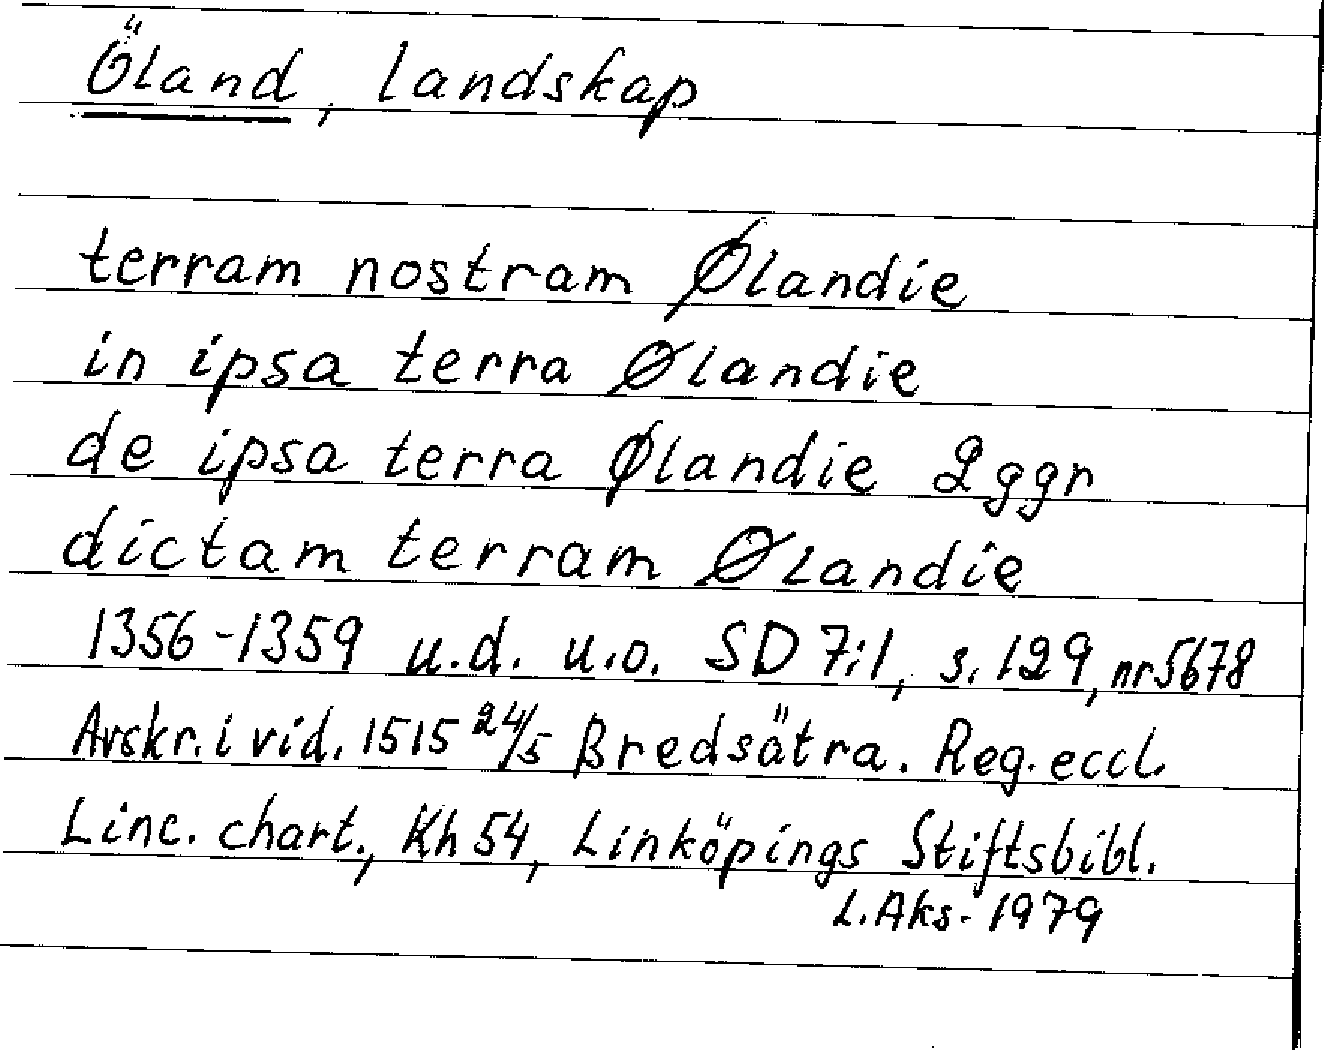 Öland, landskap
terram nostram Ølandie
in ipsa terra Ølandie
de ipsa terra Ølandie 2 ggr
dictam terram Ølandie
1356-1359 u.d. u.o. SD 7:1, s. 129, nr 5678
Avskr. i vid. 1515 24/5 Bredsätra. Reg. eccl.
Linc. chart., Kh 54, Linköpings Stiftsbibl.
L. Aks. 1979